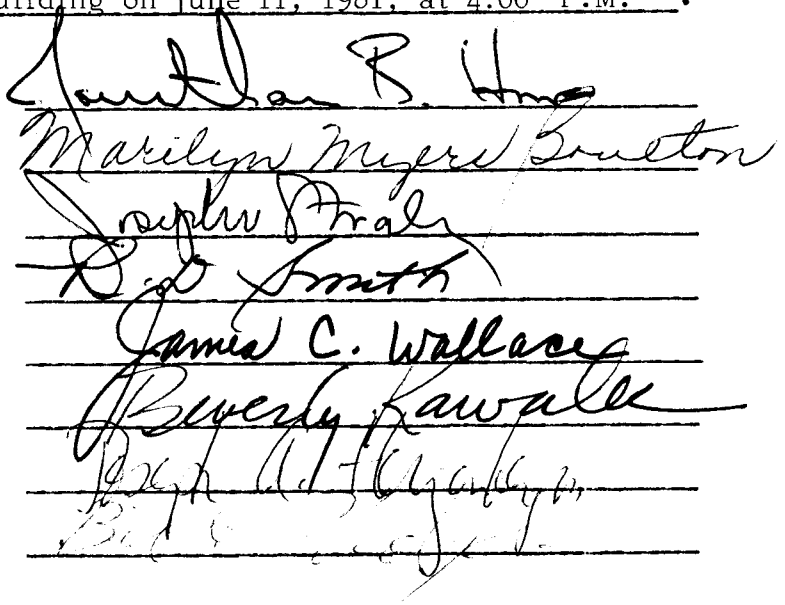 Building on June 11, 1981, at 4:00 P.M.
Jonathan B. Howes
Marilyn Myers Boulton
Joseph Straley
R.D. Smith
James C. Wallace
Beverly Kawalec
Joseph A.
Bill